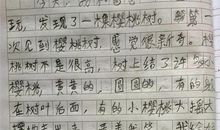 玩,发现了一棵樱桃树。
次见到樱桃树,感觉很新奇。樱
桃树不是很高,树上结了许多
樱桃,青青的,圆圆的,有的
在树叶后面,有的小樱桃大摇大